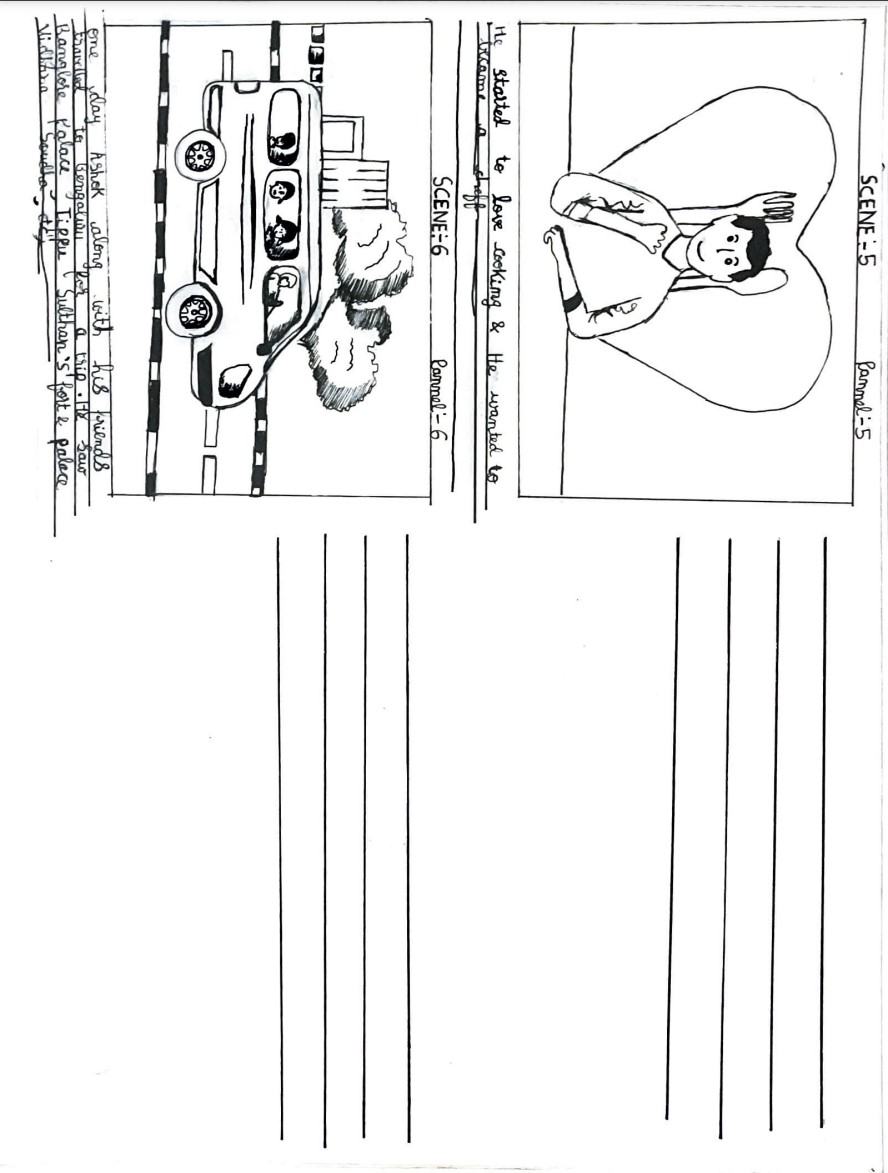 SCENE:-5
Pannel:-5
He started to love cooking & He wanted to
become a cheff
SCENE:-6
Pannel:-6
One day Ashok along with his friends
travelled to Bengaluru for a trip. He saw
Banglore Palace, Tippu Sulthan's fort & palace
Vidhana Soudha,